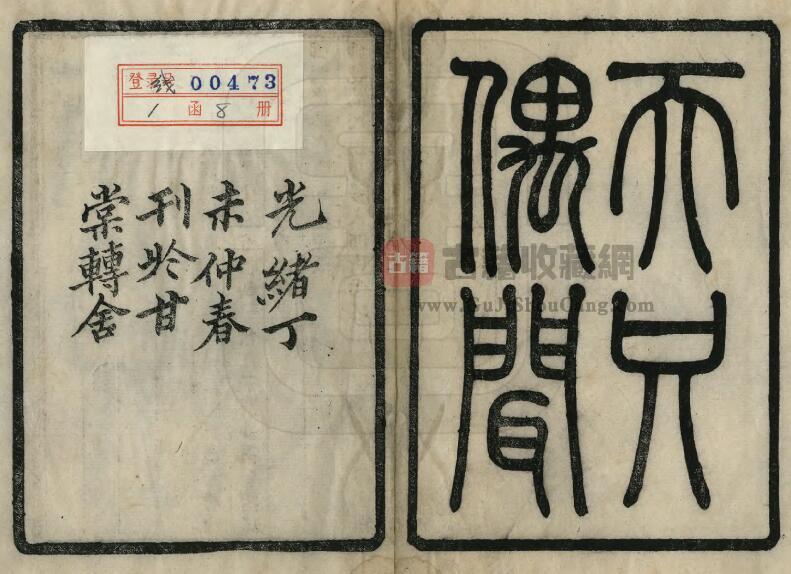 天只
偶聞
光緒丁
未仲春
刊於甘
棠轉舍
登录号 线 00473
1 函 8 册
古籍
古籍收藏網
www.GuJiShouCang.com